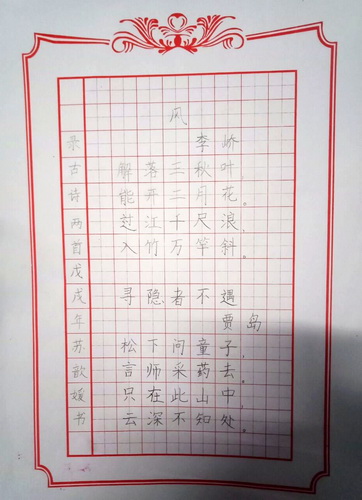 风
李峤
解落三秋叶,
能开二月花。
过江千尺浪,
入竹万竿斜。
寻隐者不遇
贾岛
松下问童子,
言师采药去。
只在此山中,
云深不知处。
录古诗两首戊戌年苏歆媛书